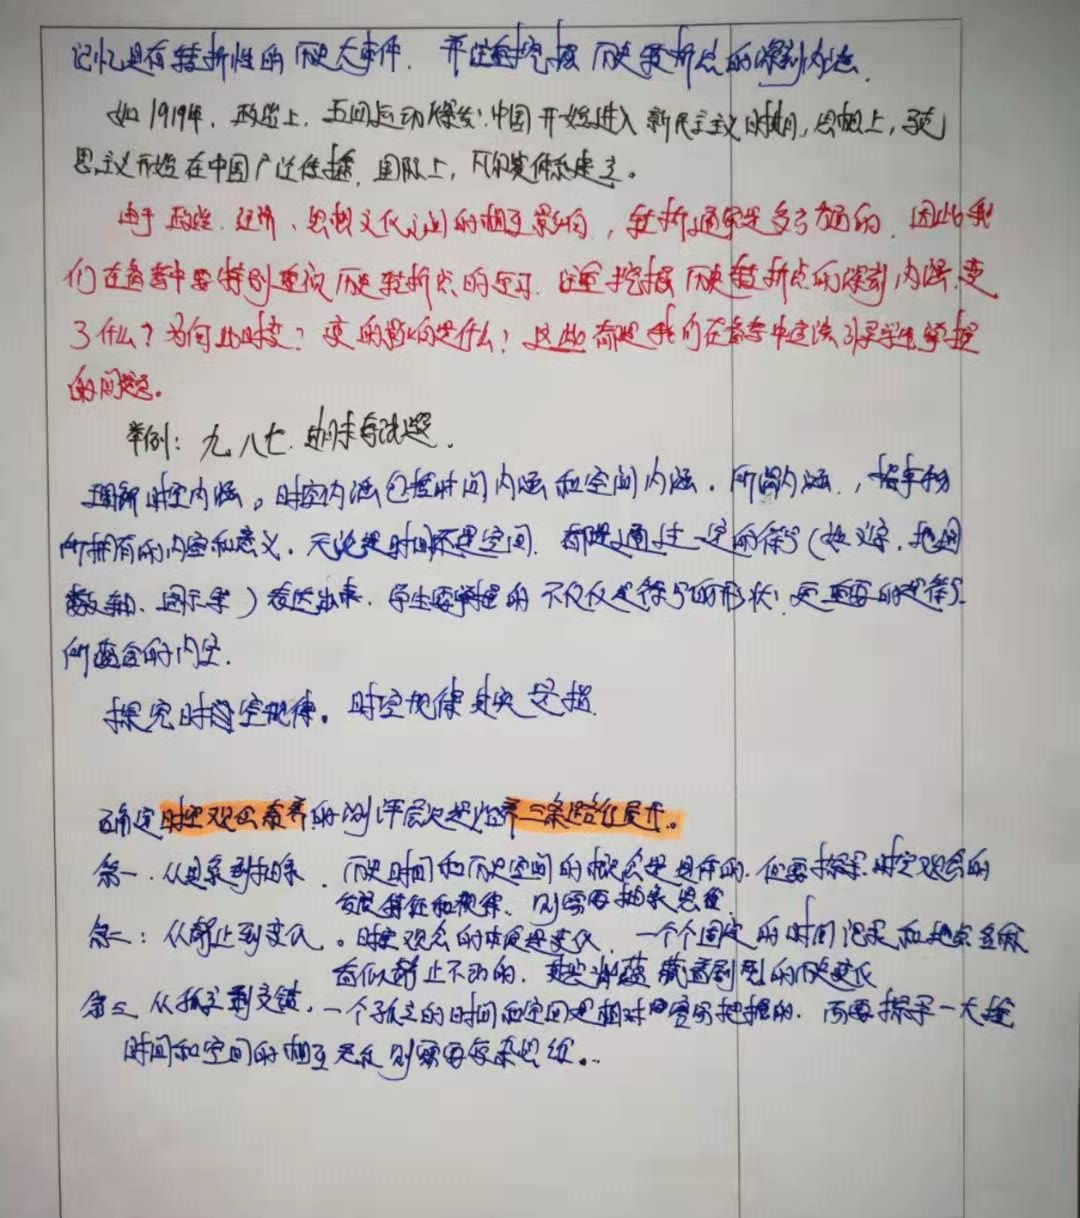 记忆具有转折性的历史大事件，并注重挖掘历史转折点的深刻内涵。
如1919年，政治上，五四运动爆发，中国开始进入新民主主义时期，思想上，马克
思主义开始在中国广泛传播，国际上，凡尔赛体系建立。
由于政治、经济、思想文化之间的相互影响，转折通常是多方面的，因此我
们在备考中要特别重视历史转折点的复习，注重挖掘历史转折点的深刻内涵，变
了什么？为何此时变？变的影响是什么？这些都是我们在备考中应该引导学生掌握
的问题。
举例：九八七、期末考试题。
理解时空内涵。时空内涵包括时间内涵和空间内涵。所谓内涵，指事物
所拥有的内容和意义，无论是时间还是空间，都是通过一定的符号（按文字，地图
数轴、图示等）表达出来，学生要掌握的不仅仅是符号的形状，更重要的是符号
所蕴含的内容。
探究时空规律。时空规律 是指
确定时空观念素养的测评层次是沿着三条路径展开。
条一．从具象到抽象．历史时间和历史空间的概念是具体的．但要探寻时空观念的
发展特征和规律，则需要抽象思维
条二：从静止到变化。时空观念的本质是变化，一个个固定的时间记录和地点
看似静止不动的，其实 藏 的历史变化
条三 从孤立到交错，一个孤立的时间和空间是相对容易把握的，而要探寻一大堆
时间和空间的相互关系则需要复杂思维…